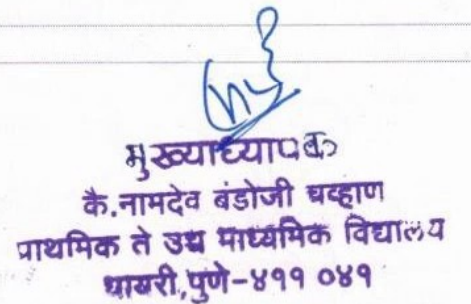 मुख्याध्यापक
कै.नामदेव बंडोजी चव्हाण
प्राथमिक ते उच्च माध्यमिक विद्यालय
धायरी,पुणे-४११ ०४१